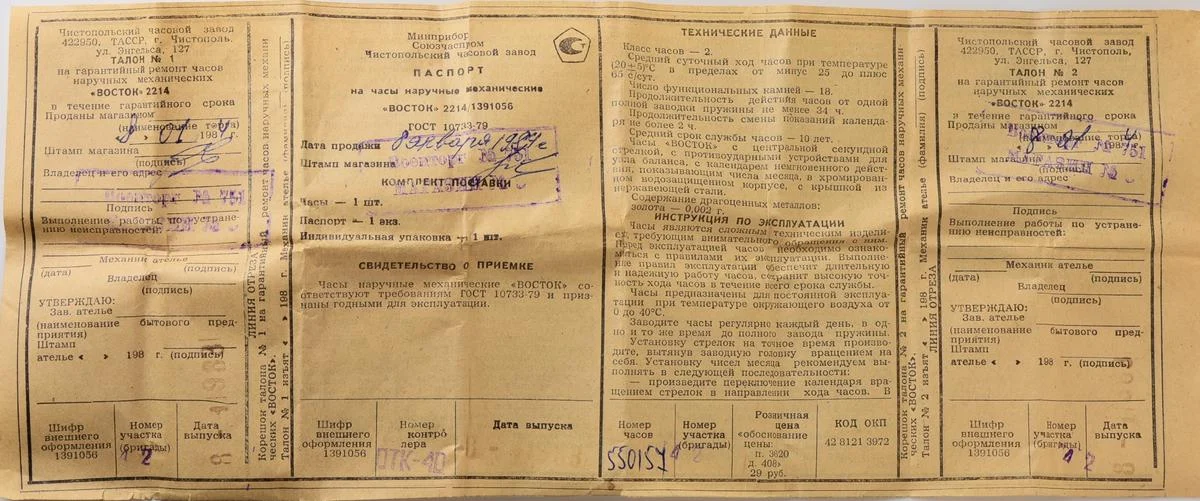 Чистопольский часовой завод
422950, ТАССР, г. Чистополь.
ул. Энгельса, 127
ТАЛОН № 1
на гарантийный ремонт часов
наручных механических
«ВОСТОК» 2214
в течение гарантийного срока
Проданы магазином
(наименование торга)
8. 01 1987 г.
Штамп магазина
(подпись)
Владелец и его адрес
Военторг № 751
Подпись
Выполнение работы по устране-
нию неисправностей:
Механик ателье
(дата) (подпись)
Владелец
(подпись)
УТВЕРЖДАЮ:
Зав. ателье
(наименование бытового пред-
приятия)
Штамп
ателье « » 198 г. (подпись)
Шифр
внешнего
оформления
1391056
Номер
участка
(бригады)
1 2
Дата
выпуска
ЛИНИЯ ОТРЕЗА
Корешок талона № 1 на гарантийный ремонт часов наручных механи-
ческих «ВОСТОК».
Талон № 1 изъят « » 198 г. Механик ателье (фамилия) (подпись)
Минприбор
Союзчаспром
Чистопольский часовой завод
ПАСПОРТ
на часы наручные механические
«ВОСТОК» 2214/1391056
ГОСТ 10733-79
Дата продажи 8 января
Штамп магазина
Военторг № 751
МАГАЗИН №
КОМПЛЕКТ ПОСТАВКИ
Часы — 1 шт.
Паспорт — 1 экз.
Индивидуальная упаковка — 1 шт.
СВИДЕТЕЛЬСТВО О ПРИЕМКЕ
Часы наручные механические «ВОСТОК» со-
ответствуют требованиям ГОСТ 10733-79 и приз-
наны годными для эксплуатации.
Шифр
внешнего
оформления
1391056
Номер
контро
лера
ОТК-40
Дата выпуска
ТЕХНИЧЕСКИЕ ДАННЫЕ
Класс часов — 2.
Средний суточный ход часов при температуре
(20±5)°С в пределах от минус 25 до плюс
65 с/сут.
Число функциональных камней — 18.
Продолжительность действия часов от одной
полной заводки пружины не менее 34 ч.
Продолжительность смены показаний календа-
ря не более 2 ч.
Средний срок службы часов — 10 лет.
Часы «ВОСТОК» с центральной секундной
стрелкой, с противоударными устройствами для
узла баланса, с календарем немгновенного дейст-
вия, показывающим числа месяца, в хромирован-
ном водозащищенном корпусе, с крышкой из
нержавеющей стали.
Содержание драгоценных металлов:
золота — 0,002 г.
ИНСТРУКЦИЯ ПО ЭКСПЛУАТАЦИИ
Часы являются сложным техническим издели-
ем, требующим внимательного обращения с ним.
Перед эксплуатацией часов необходимо ознако-
миться с правилами их эксплуатации. Выполне-
ние правил эксплуатации обеспечит длительную
и надежную работу часов, сохранит высокую точ-
ность хода часов в течение всего срока службы.
Часы предназначены для постоянной эксплуа-
тации при температуре окружающего воздуха от
0 до 40°С.
Заводите часы регулярно каждый день, в од-
но и то же время до полного завода пружины.
Установку стрелок на точное время производи-
те, вытянув заводную головку вращением на
себя. Установку чисел месяца рекомендуем вы-
полнять в следующей последовательности:
— произведите переключение календаря вра-
щением стрелок в направлении хода часов. В
Номер
часов
550157
Номер
участка
(бригады)
1 2
Розничная
цена
«обоснование
цены:
п. 3820
д. 408»
29 руб.
КОД ОКП
42 8121 3972
Корешок талона № 2 на гарантийный ремонт часов наручных механи-
ческих «ВОСТОК».
Талон № 2 изъят « » 198 г. Механик ателье (фамилия) (подпись)
ЛИНИЯ ОТРЕЗА
Чистопольский часовой завод
422950, ТАССР, г. Чистополь,
ул. Энгельса, 127
ТАЛОН № 2
на гарантийный ремонт часов
наручных механических
«ВОСТОК» 2214
в течение гарантийного срока
Проданы магазином
(наименование торга)
8. 01 198 г.
Штамп магазина
(подпись)
Владелец и его адрес
Подпись
Выполнение работы по устране-
нию неисправностей:
Механик ателье
(дата) (подпись)
Владелец
(подпись)
УТВЕРЖДАЮ:
Зав. ателье
(наименование бытового пред-
приятия)
Штамп
ателье « » 198 г. (подпись)
Шифр
внешнего
оформления
1391056
Номер
участка
(бригады)
1 2
Дата
выпуска